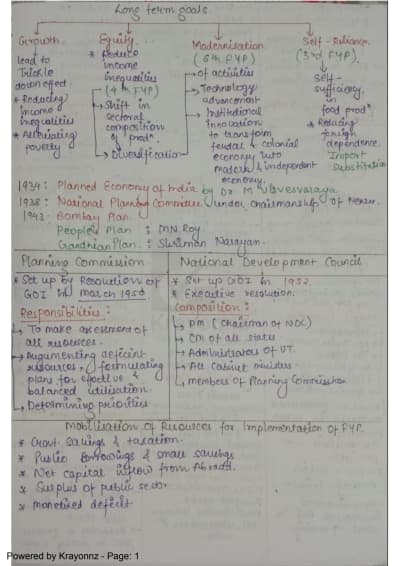 Long term goals
Growth
lead to
Trickle
down effect.
* Reducing
income
inequalities
* Alleviating
poverty
Equity
* Reduce
income
inequalities
(4th FYP)
→ Shift in
sectoral
composition
of "prodn"
→ Diversification
Modernisation
(6th FYP)
→ of activities
→ Technology
advancement
→ Institutional
Innovation
to transform
feudal & colonial
economy into
modern & independent
economy.
Self-Reliance
(3rd FYP)
Self-
sufficiency
in
food prodn
* Reducing
foreign
dependence.
Import
Substitution
1934: Planned Economy of India by Dr M Visvesvaraya
1938: National Planning Committee under chairmanship of Nehru.
1943: Bombay Plan
People's Plan : MN. Roy
Gandhian Plan : Shriman Narayan.
Planning Commission
* Set up by Resolution of
GOI in March 1950
Responsibilities :
→ To make assessment of
all resources.
→ Augmenting deficient
resources, formulating
plans for effective &
balanced utilisation.
→ Determining priorities.
National Development Council
* Set up GOI in 1952.
* Executive resolution.
Composition :
→ PM (Chairman of NDC)
→ CM of all states
→ Administrators of UT.
→ All cabinet ministers
→ members of Planning Commission
Mobilisation of Resources for Implementation of FYP.
* Govt. Savings & taxation.
* Public Borrowings & small savings
* Net capital inflow from Abroad.
* Surplus of public sector
* Monetised deficit
Powered by Krayonnz - Page: 1